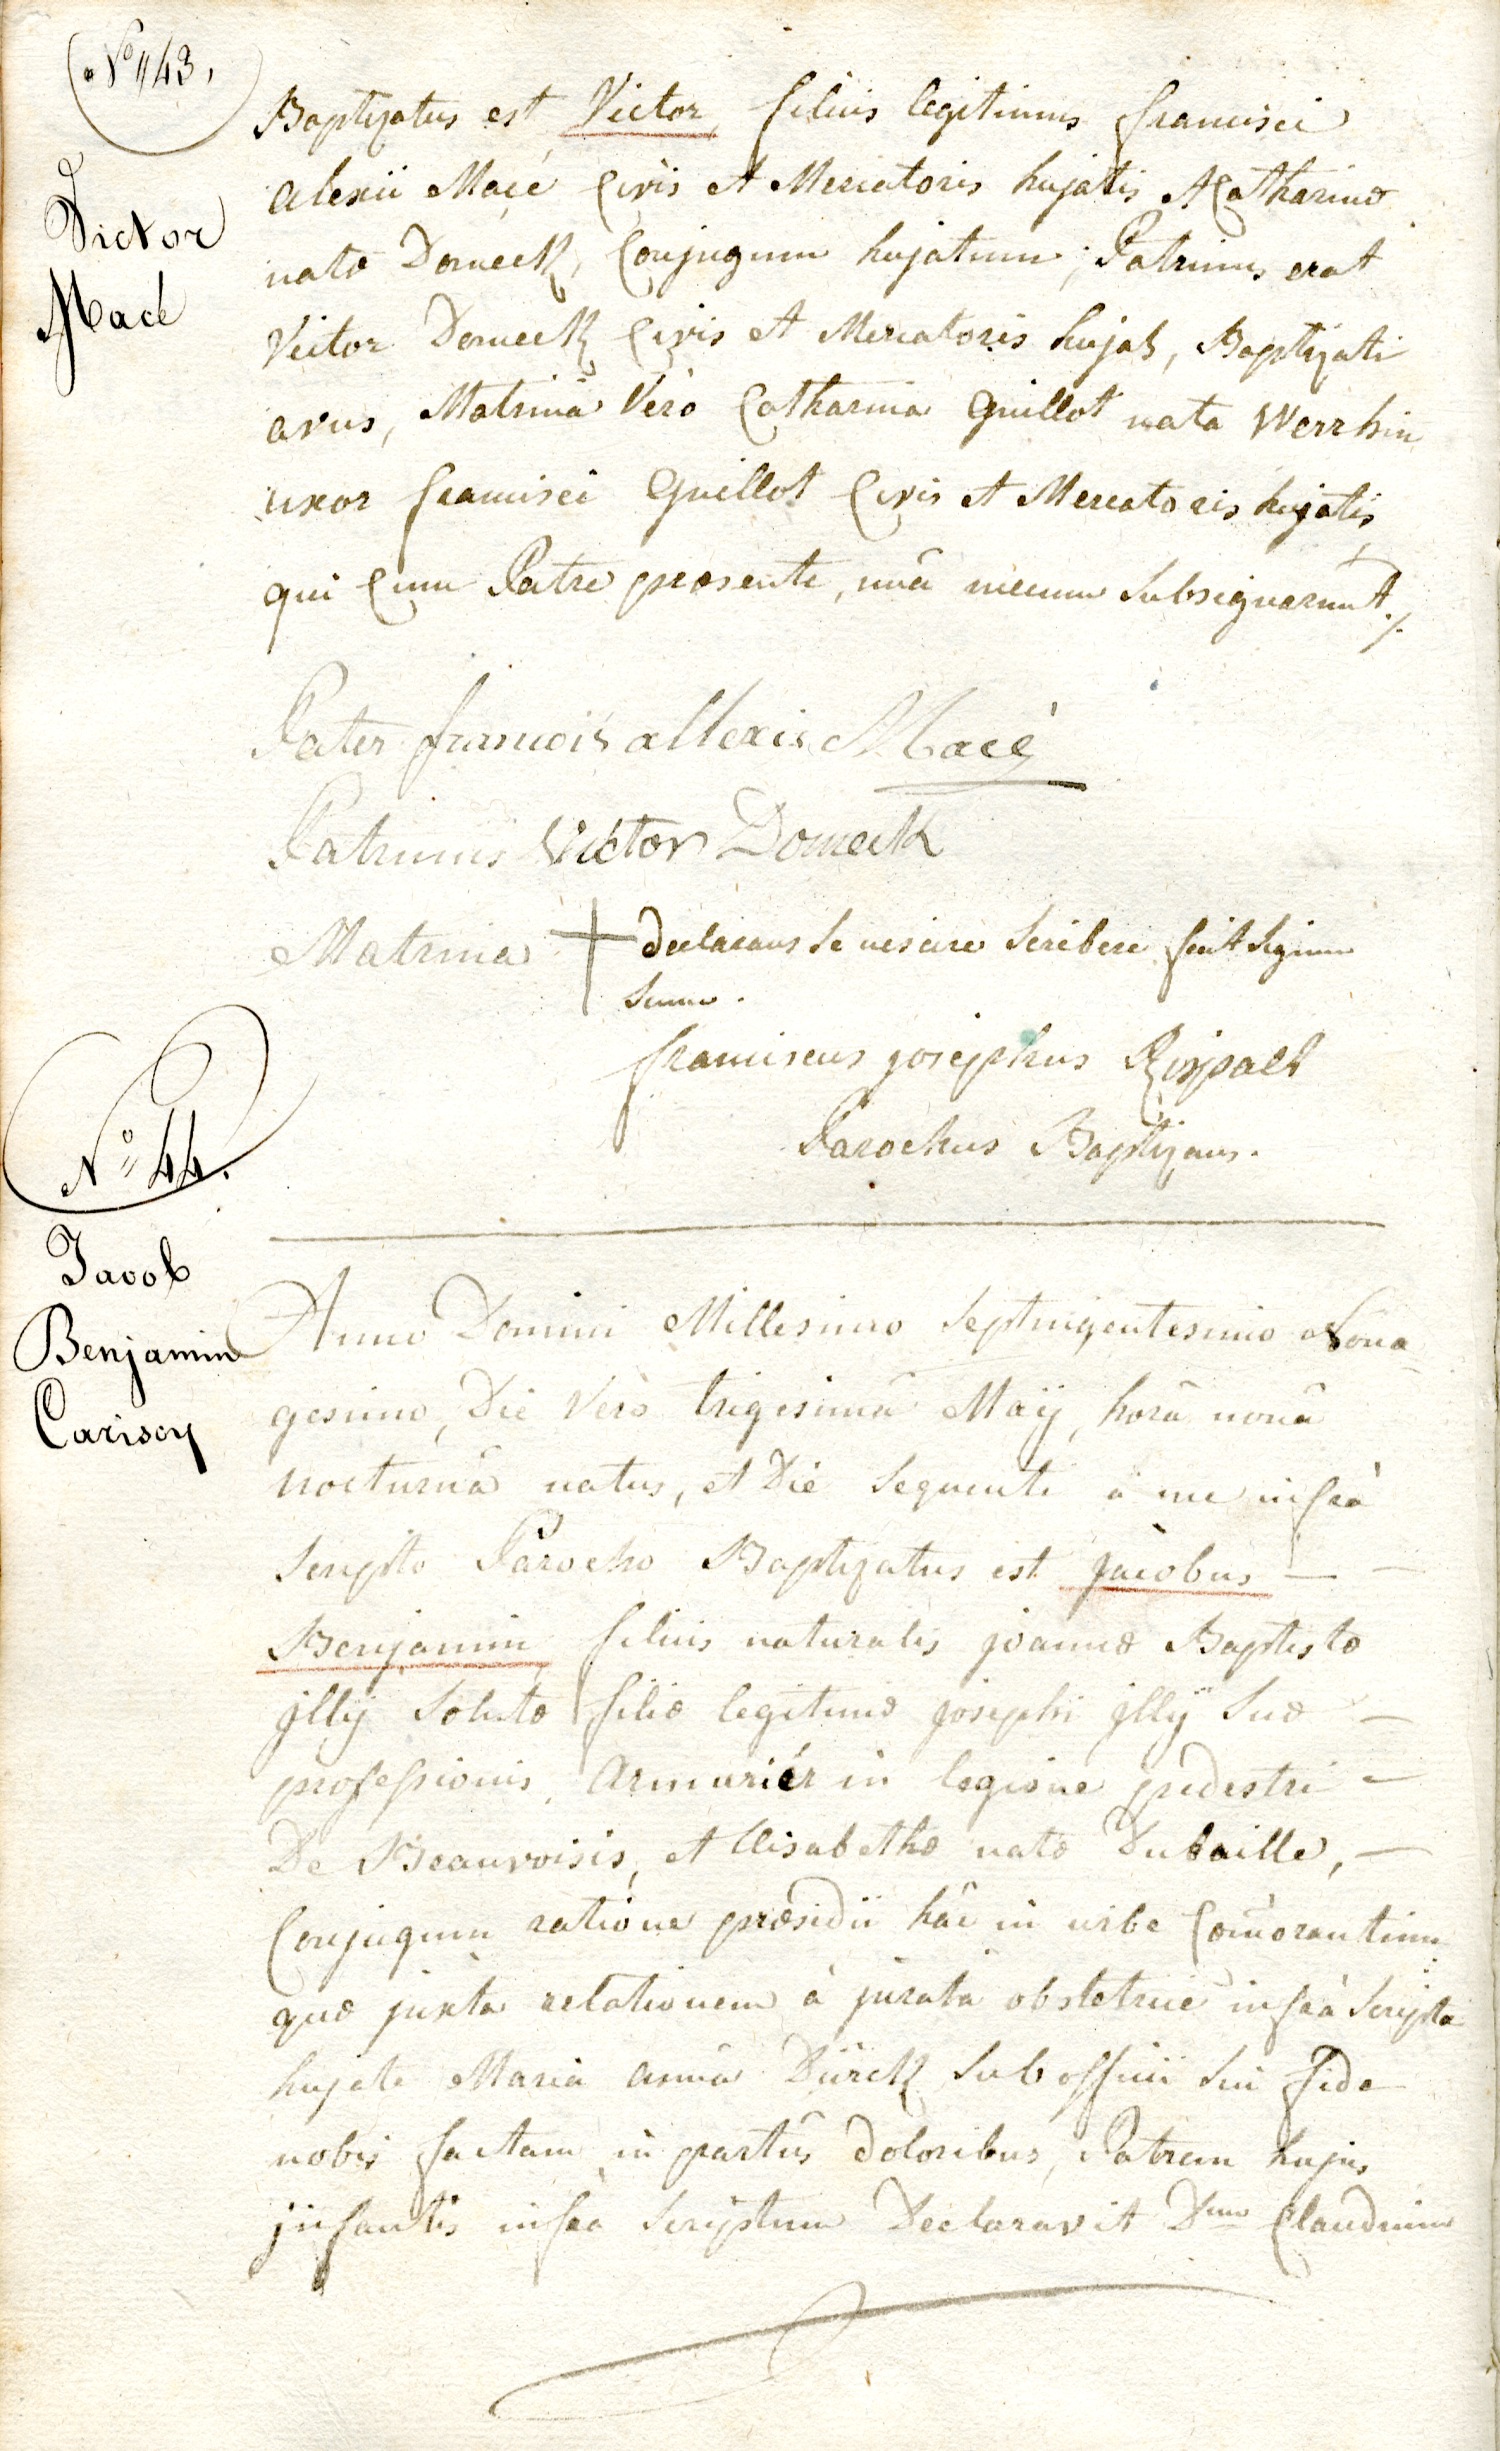 N° 43.
Victor
Macé
Baptizatus est Victor filius legitimus francisci
alexii Macé Civis et Mercatoris hujatis et Catharinæ
natæ Domeck, Conjugum hujatum; Patrinus erat
Victor Domeck Civis et Mercatoris hujas, Baptizati
avus, Matrina Verò Catharina Guillot nata Werrhin
uxor francisci Guillot Civis et Mercatoris hujatis,
qui Cum Patre præsente, unà mecum Subsignarunt./.
Pater francois allexis Macé
Patrinus Victor Domeck
Matrina + declarans se nescire scribere fecit signum
suum.
franciscus josephus
Parochus Baptizans.
N° 44.
Jacob
Benjamin
Carisey
Anno Domini Millesimo Septingentesimo Nona-
gesimo, Die Verò trigesimâ Maÿ, horâ nonâ
nocturnâ natus, et Die sequenti à me infrà
scripto Parocho Baptizatus est Jacobus —
Benjamin filius naturalis joannæ Baptistæ
jlly Solutæ filiæ legitimæ josephi jllÿ Suæ —
professionis, armuriér in legione pedestri —
De Beauvoisis, et Elisabethæ natæ Dubaille, —
Conjugum ratione præsidii hâc in urbe Com̃orantium
quæ juxta relationem à juratâ obstetrice infrà Scripta
hujate Mariâ annâ Dürck sub officii sui fide
nobis factam in partûs doloribus, Patrem hujus
jnfantis infrà scriptum Declaravit Dnum Claudium